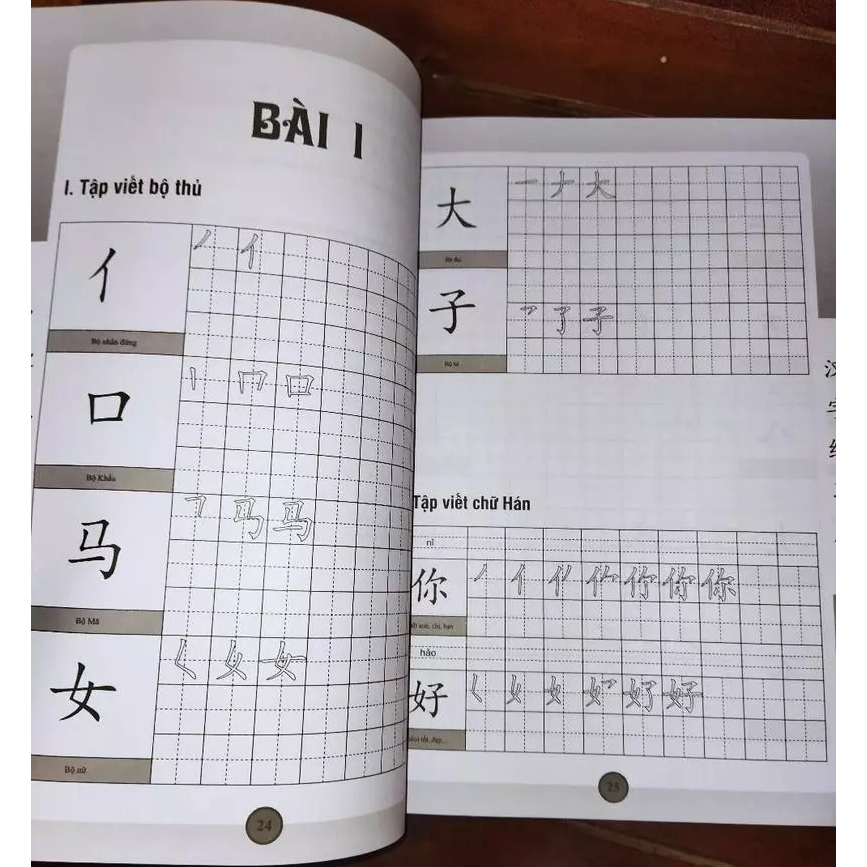 BÀI 1
I. Tập viết bộ thủ
亻
丿 亻
Bộ nhân đứng
口
丨 冂 口
Bộ Khẩu
马
马
Bộ Mã
女
女
Bộ nữ
24
大
一 ナ 大
子
了 子
Tập viết chữ Hán
nǐ
你
丿 亻 你
anh, chị, bạn
hǎo
好
女 好
tốt, đẹp...
25
汉
字